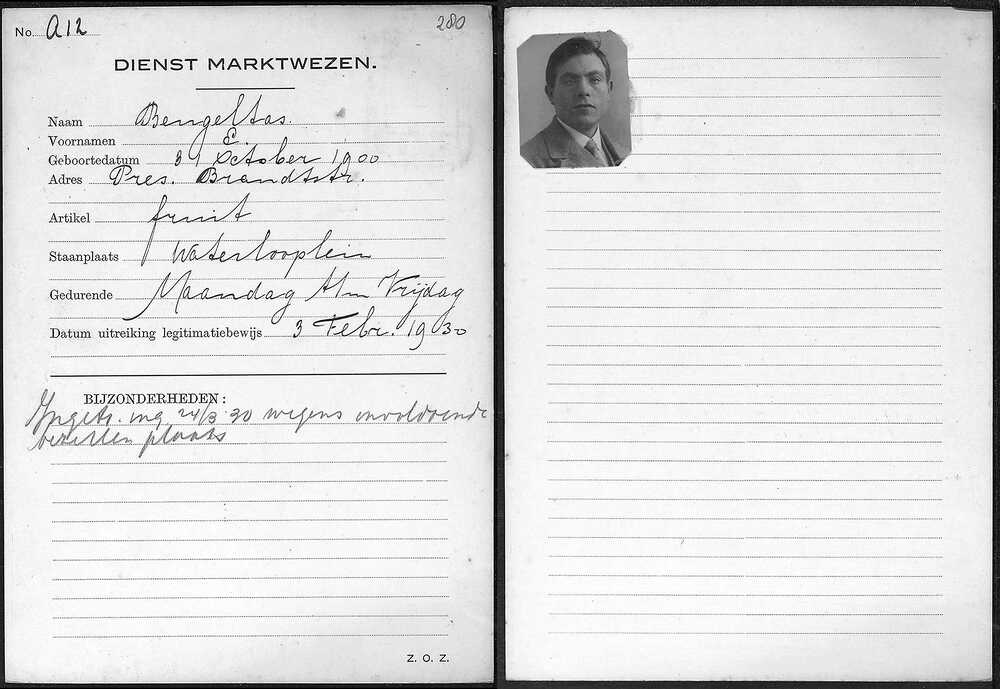 No. A12
280
DIENST MARKTWEZEN.
Naam Bengeltas.
Voornamen E.
Geboortedatum 31 October 1900
Adres Pres. Brandtstr.
Artikel fruit
Staanplaats Waterlooplein
Gedurende Maandag t/m Vrijdag
Datum uitreiking legitimatiebewijs 3 Febr. 1930
BIJZONDERHEDEN:
Ingetr. ing. 24/3 30 wegens onvoldoende
bezetten plaats
Z. O. Z.